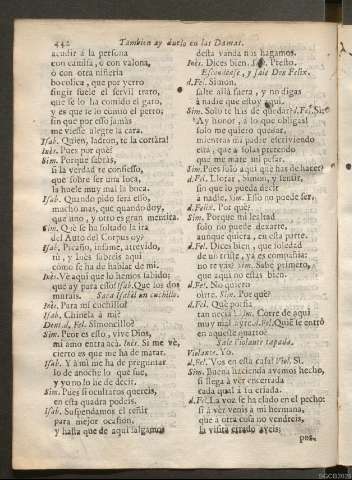 442 Tambien ay duelo en las Damas.
acudir à la persona
con camisa, ò con valona,
ò con otra niñeria
bocolica, que por yerro
singir suele el servil trato,
que se lo ha comido el gato,
y es que se lo comiò el perro;
sin que por esso jamàs
me viesse alegre la cara.
Isab. Quien, ladron, te la cortàra!
Inès. Pues por què?
Sim. Porque sabràs,
si la verdad te confiesso,
que sobre ser una loca,
la huele muy mal la boca.
Isab. Quando pido sera esso,
mucho mas, que quando doy,
que uno, y otro es gran mentira.
Sim. Què se ha soltado la ira
del Auto del Corpus oy?
Isab. Picaño, infame, atrevido,
tù, y Inès sabreis aqui
como se ha de hablar de mi.
Inès. Ve aqui que lo hemos sabido;
què ay para esso? Isab. Que los dos
murais. Saca Isabel un cuchillo.
Inès. Para mi cuchillo?
Isab. Chinela à mi?
Dent. d. Fel. Simoncillo?
Sim. Peor es esso, vive Dios,
mi amo entra acà. Inès. Si me vè,
cierto es que me ha de matar.
Isab. Y à mi me ha de preguntar
lo de anoche lo què fue,
y yo no lo he de decir.
Sim. Pues si ocultaros quereis,
en esta quadra podeis.
Isab. Suspendamos el reñir
para mejor ocasion,
y hasta que de aqui salgamos
desta vanda nos hagamos.
Inès. Dices bien. Sim. Presto.
Escondense, y sale Don Felix.
d. Fel. Simon,
salte allà fuera, y no digas
à nadie que estoy aqui.
Sim. Solo te has de quedar? d. Fel. Si.
Ay honor, à lo que obligas!
solo me quiero quedar,
mientras mi padre escriviendo
està, que à solas pretendo
que me mate mi pesar.
Sim. Pues solo aqui què has de hacer?
d. Fel. Llorar, Simon, y sentir,
sin que lo pueda decir
à nadie. Sim. Esso no puede ser.
d. Felix. Por què?
Sim. Porque mi lealtad
solo no puede dexarte,
aunque quiera, en esta parte.
d. Fel. Dices bien, que soledad
de un triste, ya es compañia:
no te vàs? Sim. Sabe primero,
que aqui no estàs bien.
d. Fel. No quiero
oirte. Sim. Por què?
d. Fel. Què porfia
tan necia! Sim. Corre de aqui
muy mal ayre. d. Fel. Quiè se entrò
en aqueste quarto?
Sale Violante tapada.
Violante. Yo.
d. Fel. Vos en esta casa? Viol. Si.
Sim. Buena hacienda avemos hecho,
si llega à ver encerrada
cada qual à su criada.
d. Fel. La voz se ha clado en el pecho:
si à ver venis à mi hermana,
que à otra cosa no vendreis,
la visita errado aveis;
pos.